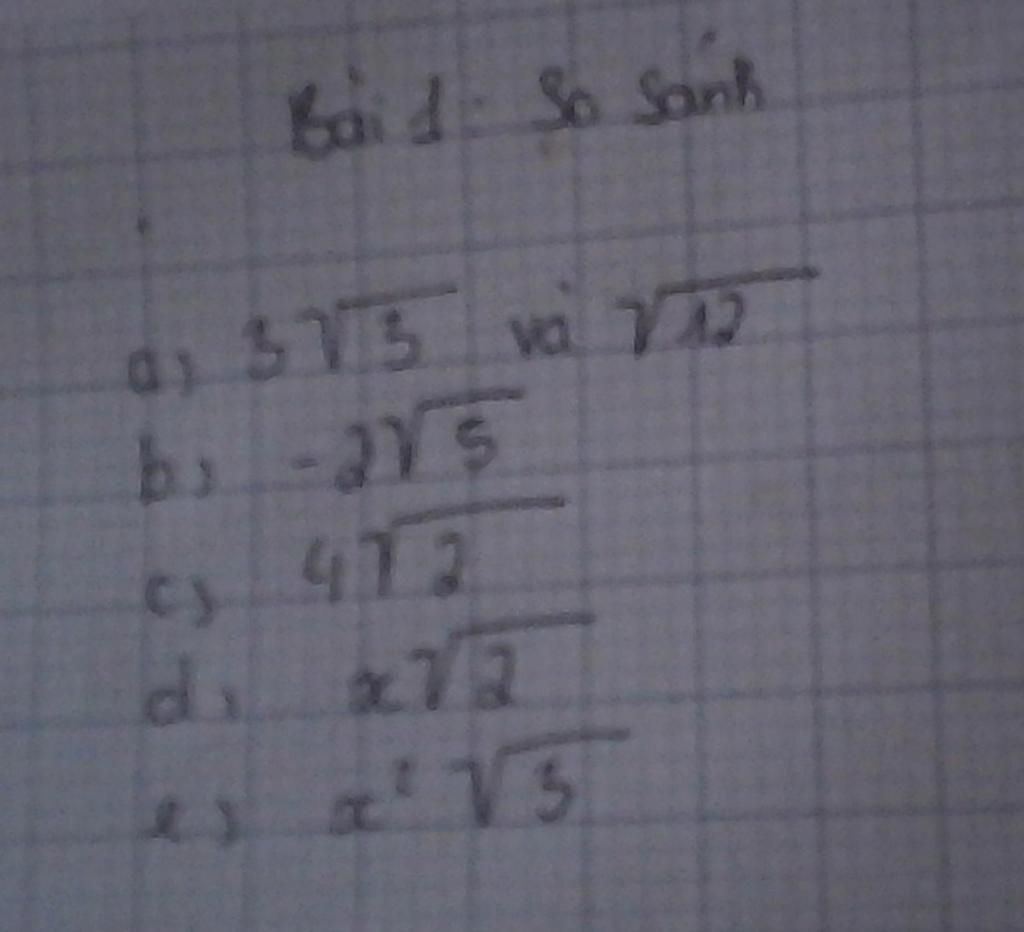 Bài 1: So sánh
a) 3√3 và √12
b) -2√5
c) 4√2
d) x√2
e) x² √3